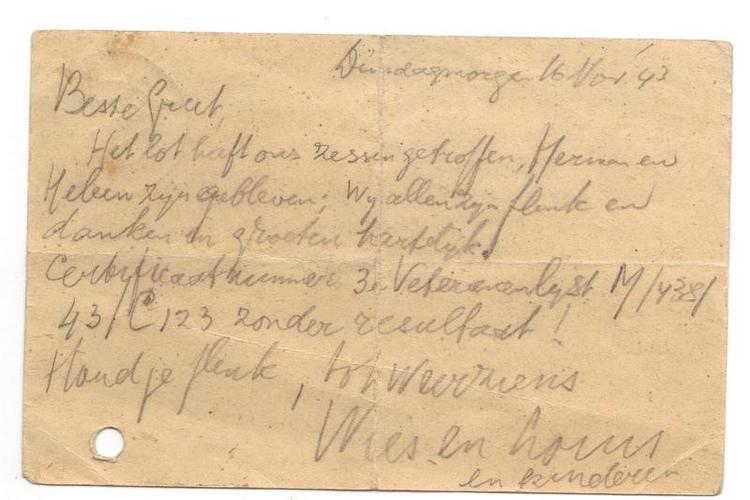 Dinsdagmorgen 16 Nov. 43
Beste Greet,
Het lot heeft ons zessen getroffen, Herman en
Heleen zijn gebleven; Wij allen zijn flink en
danken en groeten hartelijk.
Certificaatnummer 3e Veteranenlijst M/438/
43/C123 zonder resultaat!
Houd je flink, tot weerziens
Wies en Louis
en kinderen